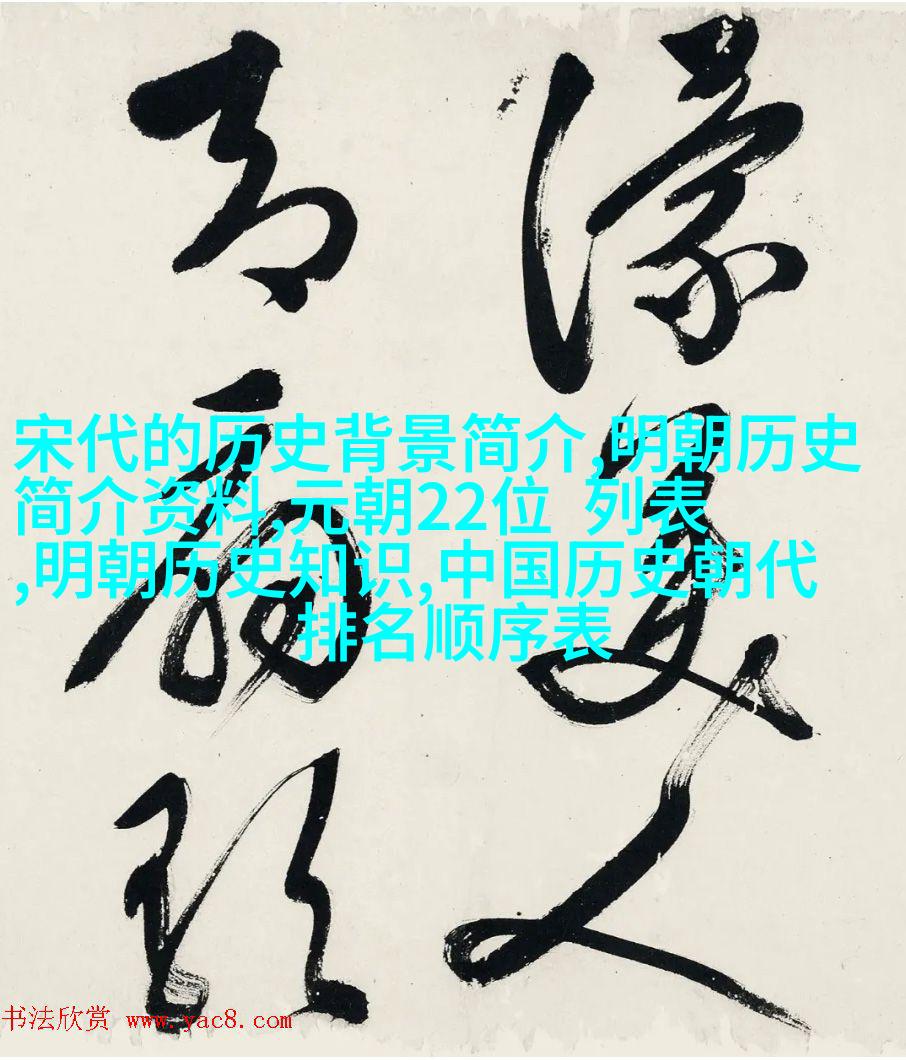 濠美人
吉扇頭
宋代的历史背景简介,明朝历史
简介资料,元朝22位 列表
,明朝历史知识,中国历史朝代
排名顺序表
书法欣赏 www.yac8.com